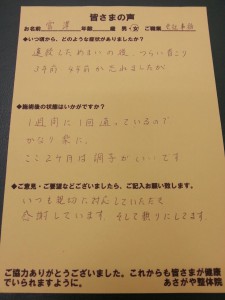 皆さまの声
お名前 宮澤 年齢 歳 男・女 ご職業
◆いつ頃から、どのような症状がありましたか？
運転したためまいの後、つらい首こり
3年前 4年前か忘れましたが
◆施術後の状態はいかがですか？
1週間に1回通っているので
かなり楽に。
ここ2ヶ月は調子がいいです
◆ご意見・ご要望などございましたら、ご記入お願い致します。
いつも親切に対応していただき
感謝しています。そして頼りにしてます。
ご協力ありがとうございました。これからも皆さまが健康
でいられますように。 あさがや整体院